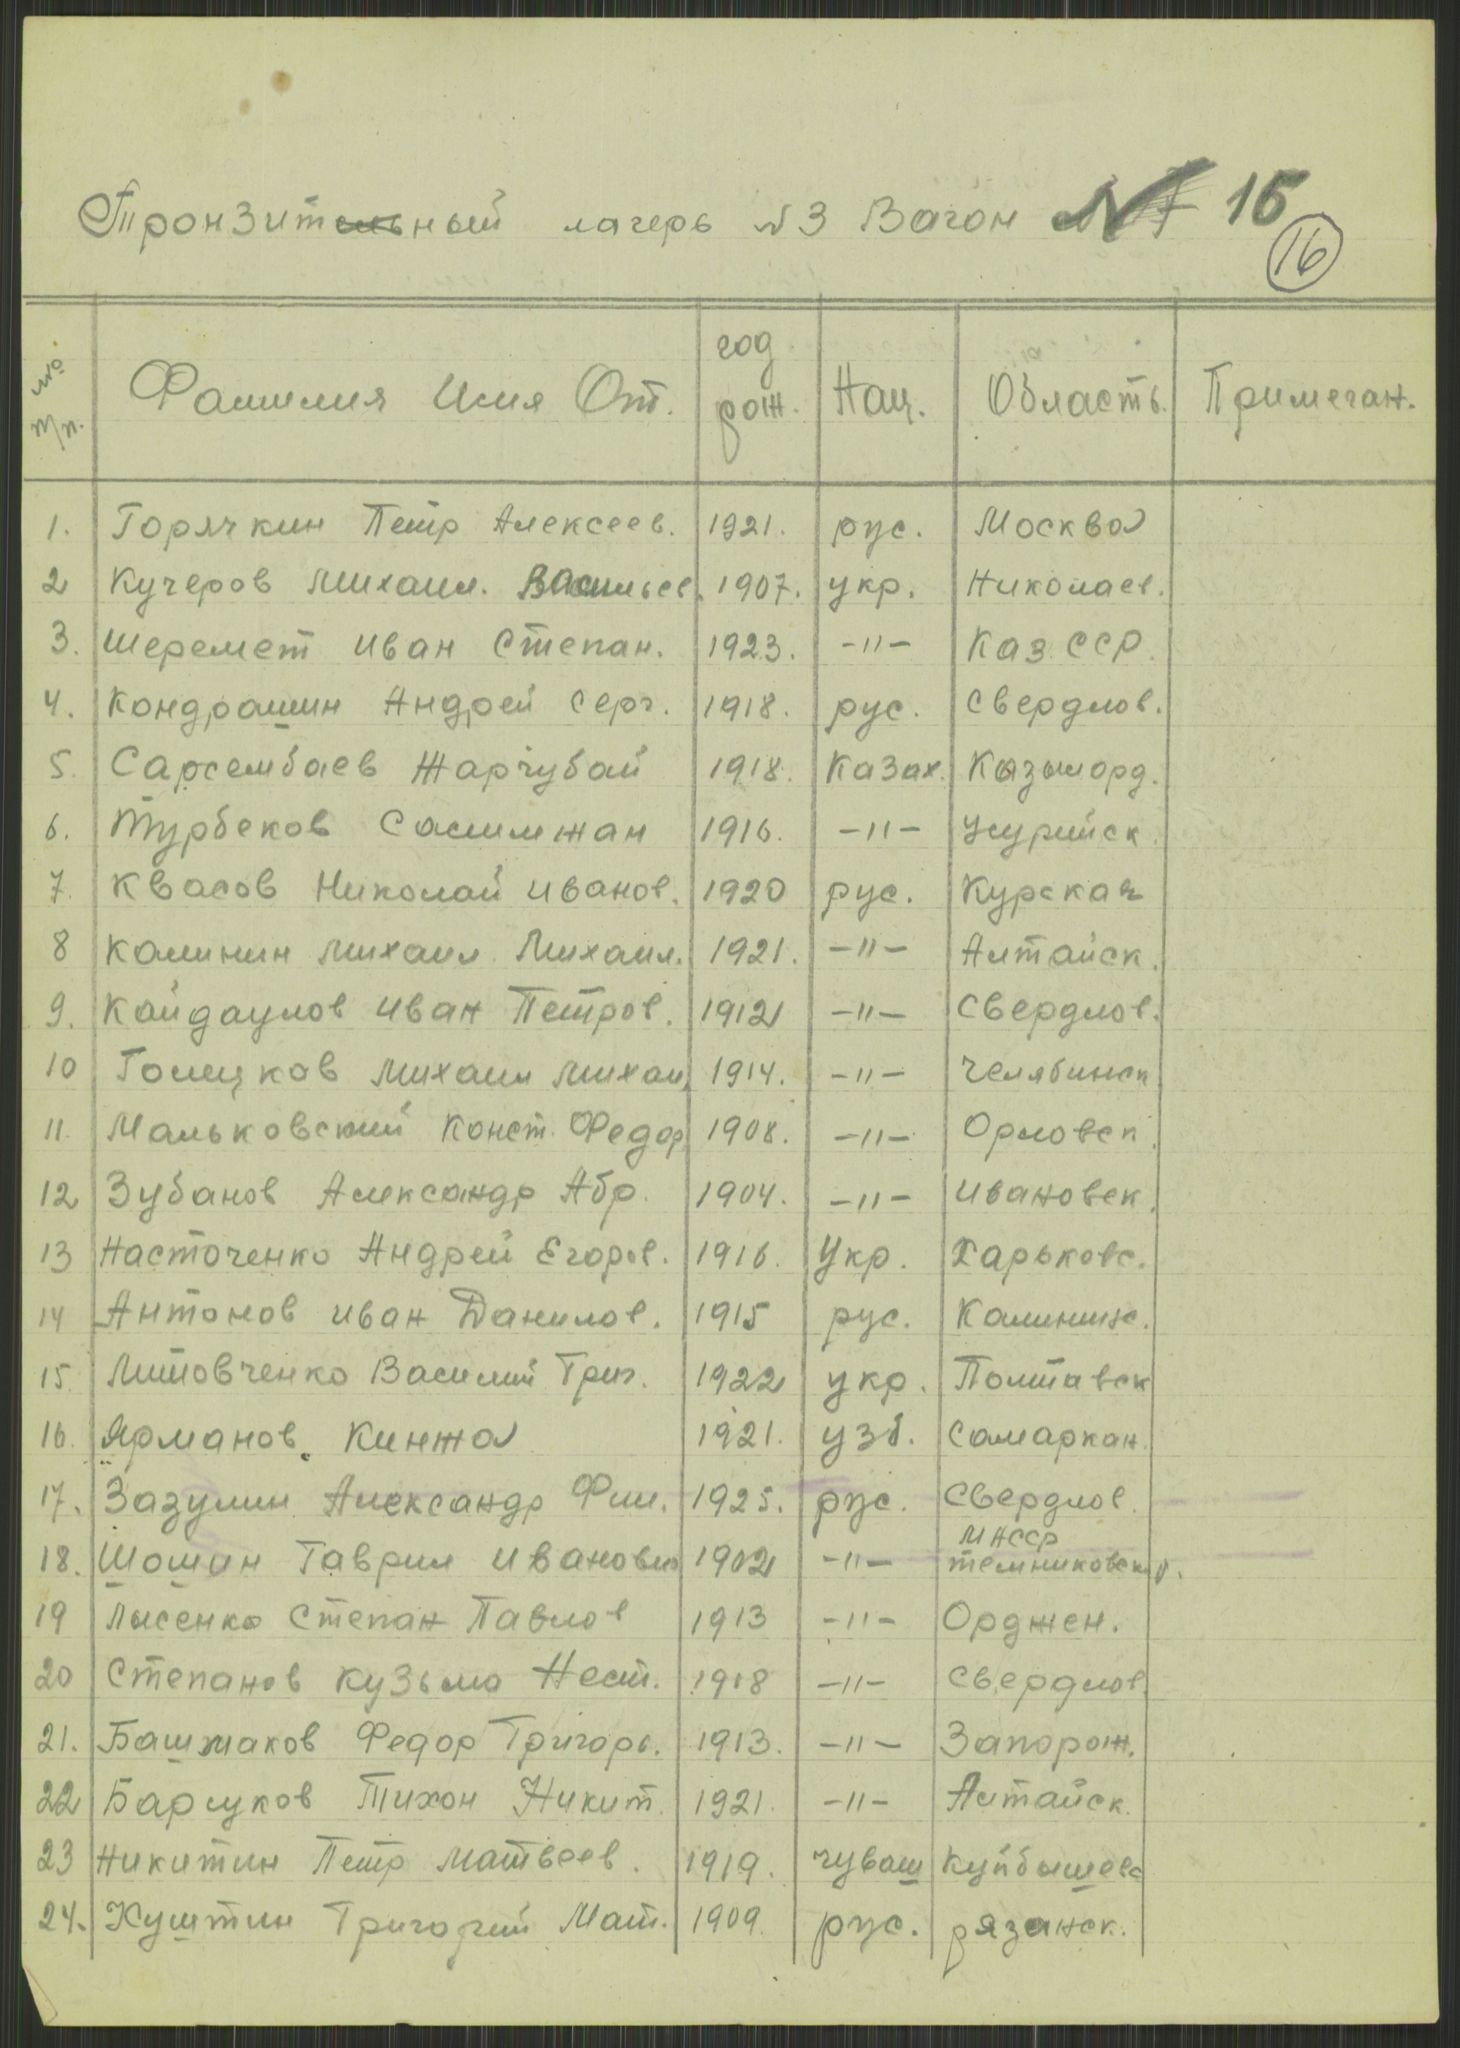 Транзитный лагерь № 3 Вагон № 15
16
№ п/п. Фамилия Имя От. год рож. Нац. Область. Примечан.
1. Горячкин Петр Алексеев. 1921. рус. Москва
2 Кучеров Михаил. Васильев. 1907. укр. Николаев.
3. Шеремет Иван Степан. 1923. -"- Каз. ССР.
4. Кондрашин Андрей Серг. 1918. рус. Свердлов.
5. Сарсембаев Жарчубай 1918. Казах. Кызылорд.
6. Турбеков Салимжан 1916. -"-
7. Квасов Николай Иванов. 1920 рус. Курская
8 Калинин Михаил Михаил. 1921. -"- Алтайск.
9. Кайдаулов Иван Петров. 1912 -"- Свердлов.
10 Голецков Михаил Михаил 1914. -"- Челябинск
11. Мальковский Конст. Федор 1908. -"- Орловск.
12 Зубанов Александр Абр. 1904. -"- Ивановск.
13 Насточенко Андрей Егоров. 1916. Укр. Харьковс.
14 Антонов Иван Данилов. 1915 рус. Калининс.
15. Литовченко Василий Григ. 1922 укр. Полтавск
16. Ярманов Кинжа 1921. узб. Самаркан.
17. Зазулин Александр Фил. 1925. рус. Свердлов.
18. Шошин Гаврил Иванович 1902 -"- МАССР Темниковский р.
19 Лысенко Степан Павлов 1913 -"- Орджен.
20 Степанов Кузьма Нест. 1918 -"- Свердлов
21. Башмаков Федор Григорь. 1913. -"- Запорож.
22 Барсуков Тихон Никит. 1921. -"- Алтайск.
23 Никитин Петр Матвеев. 1919. чуваш Куйбышевс
24. Куштин Григорий Мат. 1909. рус. рязанск.